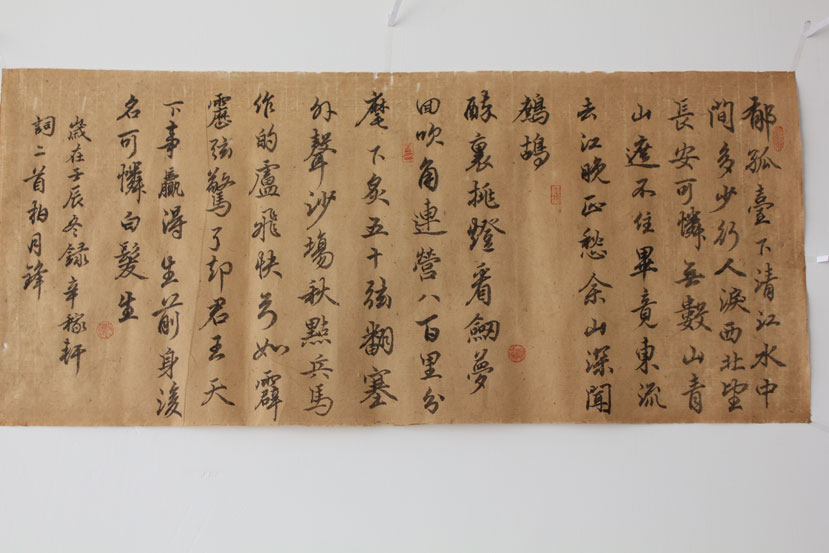 郁孤臺下清江水中
間多少行人淚西北望
長安可憐無數山青
山遮不住畢竟東流
去江晚正愁余山深聞
鷓鴣
醉裏挑燈看劍夢
回吹角連營八百里分
麾下炙五十弦翻塞
外聲沙場秋點兵馬
作的盧飛快弓如霹
靂弦驚了却君王天
下事贏得生前身後
名可憐白髮生
歲在壬辰冬錄辛稼軒
詞二首 月鋒